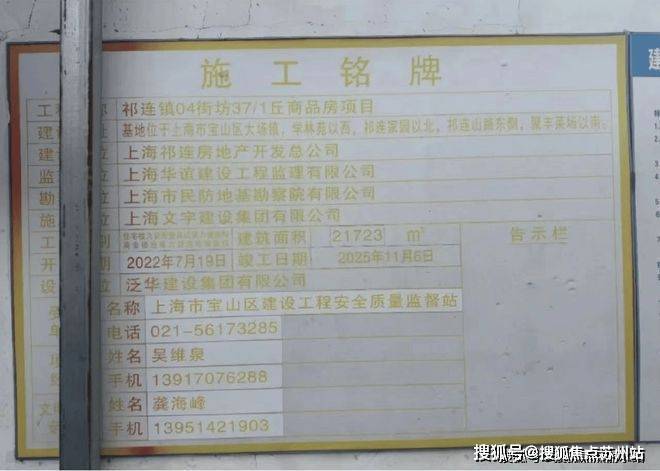 施工铭牌
祁连镇04街坊37/1丘商品房项目
基地位于上海市宝山区大场镇，学林苑以西，祁连家园以北，祁连山路东侧，聚丰菜场以南。
上海祁连房地产开发总公司
上海华谊建设工程监理有限公司
上海市民防地基勘察院有限公司
上海文宇建设集团有限公司
建筑面积 21723 m² 告示栏
2022年7月19日 竣工日期 2025年11月6日
泛华建设集团有限公司
名称 上海市宝山区建设工程安全质量监督站
电话 021-56173285
姓名 吴维泉
手机 13917076288
姓名 龚海峰
手机 13951421903
建
搜狐号@搜狐焦点苏州站